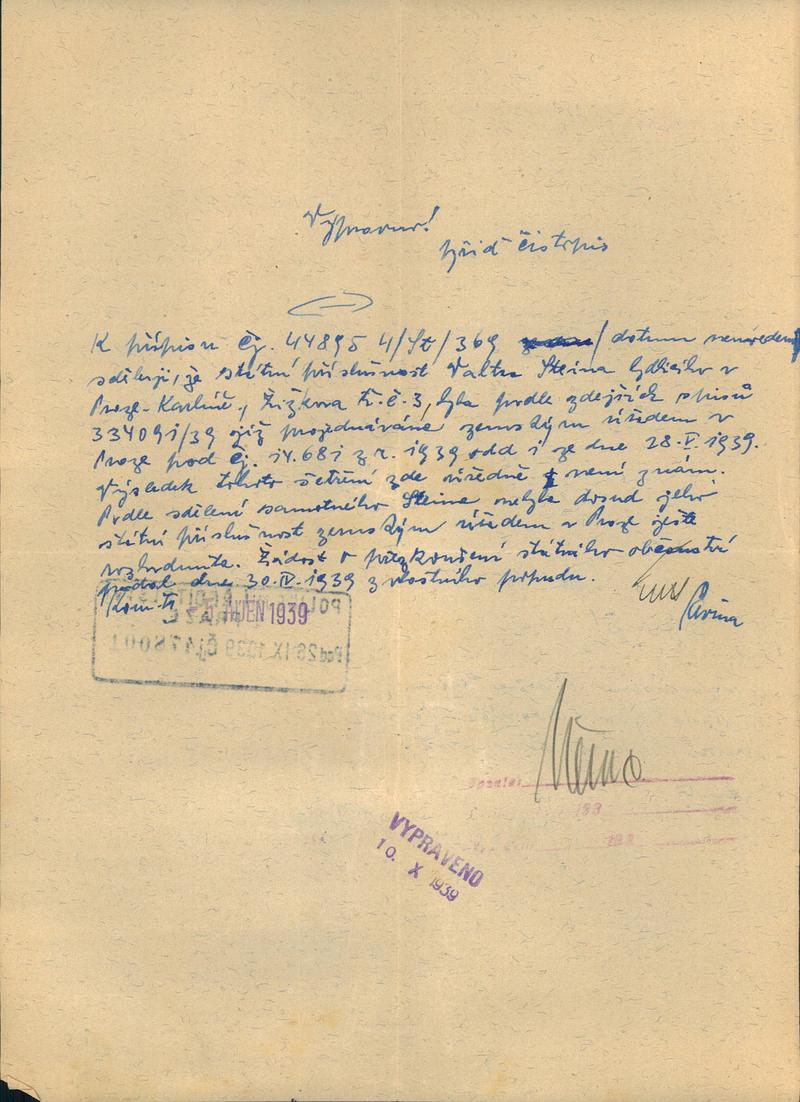 Vypravur!
příd čistopis
K přípisu čj. 44895 4/St/369 / datum neuvedeno
sděluji, že státní příslušnost Valtra Steina bydlícího v
Praze-Karlíně, Žižkova tř. č. 3, byla podle zdejších spisů
33409i/39 již projednávána zemským úřadem v
Praze pod čj. 14.681 z r. 1939 odd i ze dne 28.V.1939.
Výsledek tohoto šetření zde úředně není znám.
Podle sdělení samotného Steina nebyla dosud jeho
státní příslušnost zemským úřadem v Praze ještě
rozhodnuta. Žádost o přezkoušení státního občanství
podal dne 30.IV.1939 z vlastního popudu.
5. ŘÍJEN 1939
POLICEJNÍ ŘEDITELSTVÍ
Pod 26 IX 1939 Čj 478001
VYPRAVENO
10. X 1939